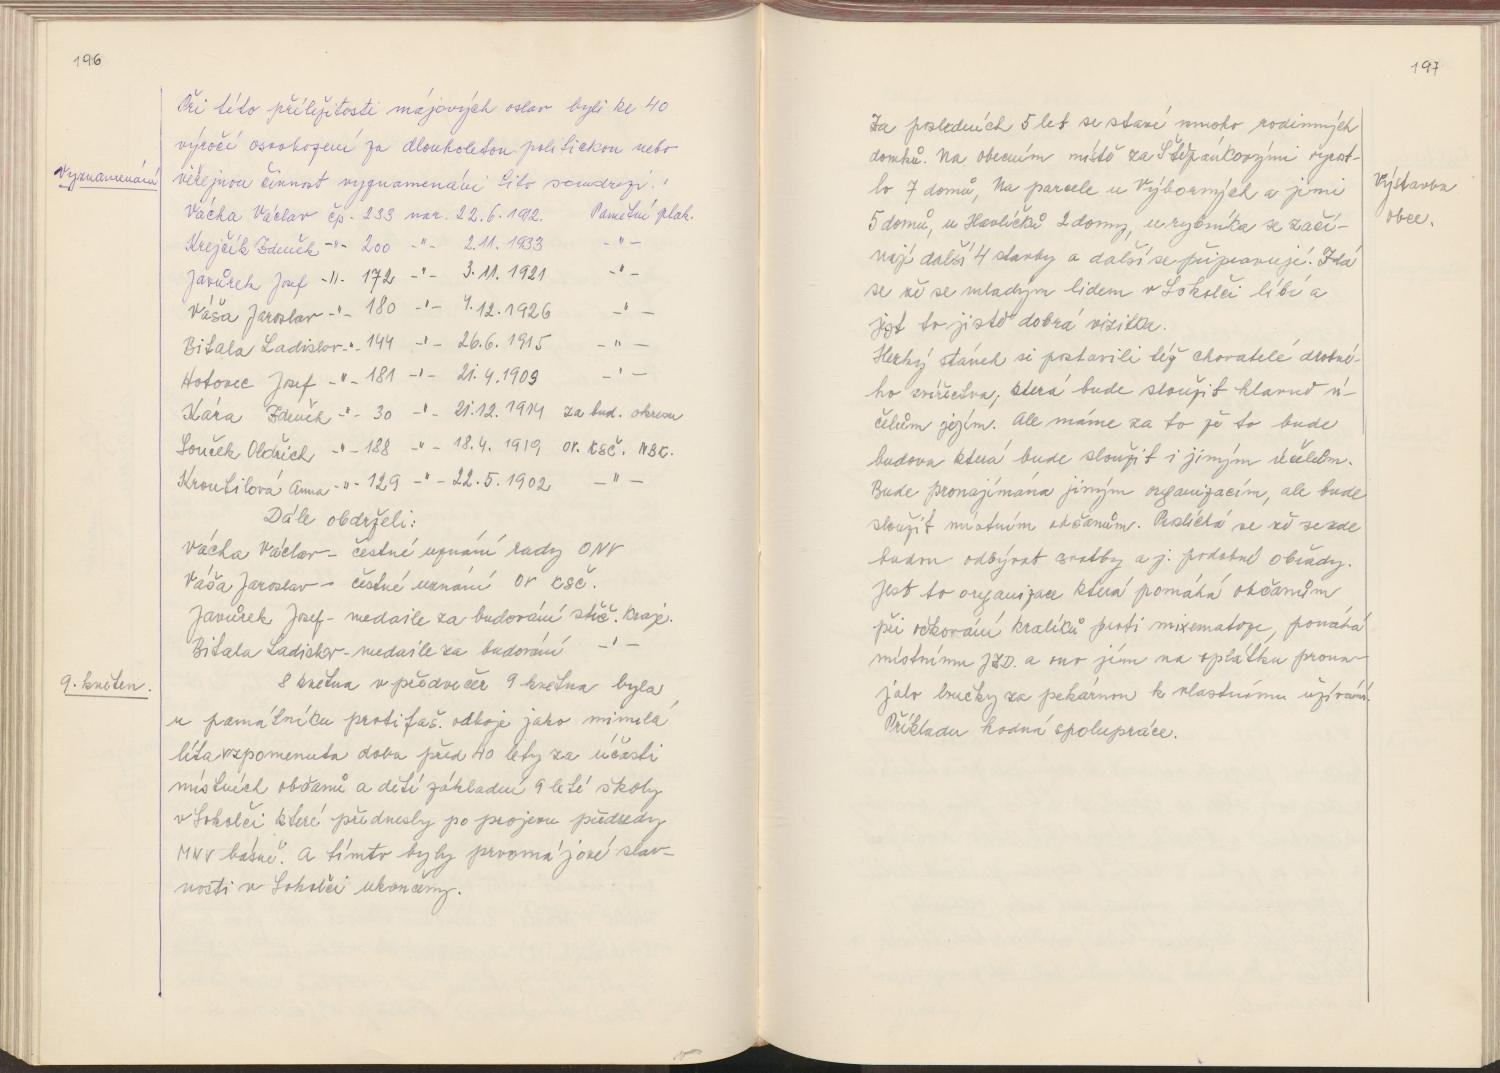 196
Při této příležitosti májových oslav byli ke 40
výročí osvobození za dlouholetou politickou nebo
Vyznamenání
veřejnou činnost vyznamenáni tito soudruzi:
Vácha Václav čp. 233 nar. 22.6.1912. Pamětní plak.
Krejčík Zdeněk -"- 200 -"- 2.11.1933 -"-
Javůrek Josef -"- 172 -"- 3.11.1921 -"-
Váša Jaroslav -"- 180 -"- 4.12.1926 -"-
Bitala Ladislav -"- 144 -"- 26.6.1915 -"-
Hotovec Josef -"- 181 -"- 21.4.1909 -"-
Kára Zdeněk -"- 30 -"- 21.12.1914 za bud. okresu
Souček Oldřich -"- 188 -"- 18.4.1919 OV. KSČ. NBK.
Kroutilová Anna -"- 129 -"- 22.5.1902 -"-
Dále obdrželi:
Vácha Václav - čestné uznání rady ONV
Váša Jaroslav - čestné uznání OV KSČ.
Javůrek Josef - medaile za budování stč. kraje.
Bitala Ladislav - medaile za budování -"-
9. květen.
8 května v předvečer 9 května byla
u památníku protifaš. odboje jako minulá
léta vzpomenuta doba před 40 lety za účasti
místních občanů a dětí základní 9 leté školy
v Sokolči které přednesly po projevu předsedy
MNV básně. A tímto byly prvomájové slav-
nosti v Sokolči ukončeny.
197
Za posledních 5 let se staví mnoho rodinných
domků. Na obecním místě za Štěpánkovými vyrost-
Výstavba
obce.
lo 7 domů, Na parcele u Výborných a jimi
5 domů, u Havlíčků 2 domy, u rybníka se začí-
nají další 4 stavby a další se připravují. Zdá
se že se mladým lidem v Sokolči líbí a
jest to jistě dobrá visitka.
Hezký stánek si postavili též chovatelé drobné-
ho zvířectva, která bude sloužit hlavně ú-
čelům jejím. Ale máme za to že to bude
budova která bude sloužit i jiným účelům.
Bude pronajímána jiným organizacím, ale bude
sloužit místním občanům. Proslíchá se že se zde
budou odbývat svatby a j. podobné obřady.
Jest to organizace která pomáhá občanům
při očkování králíků proti mixematoze, pomáhá
místnímu JZD. a ono jim na oplátku prona-
jalo loučky za pekárnou k vlastnímu užívání.
Příkladu hodná spolupráce.